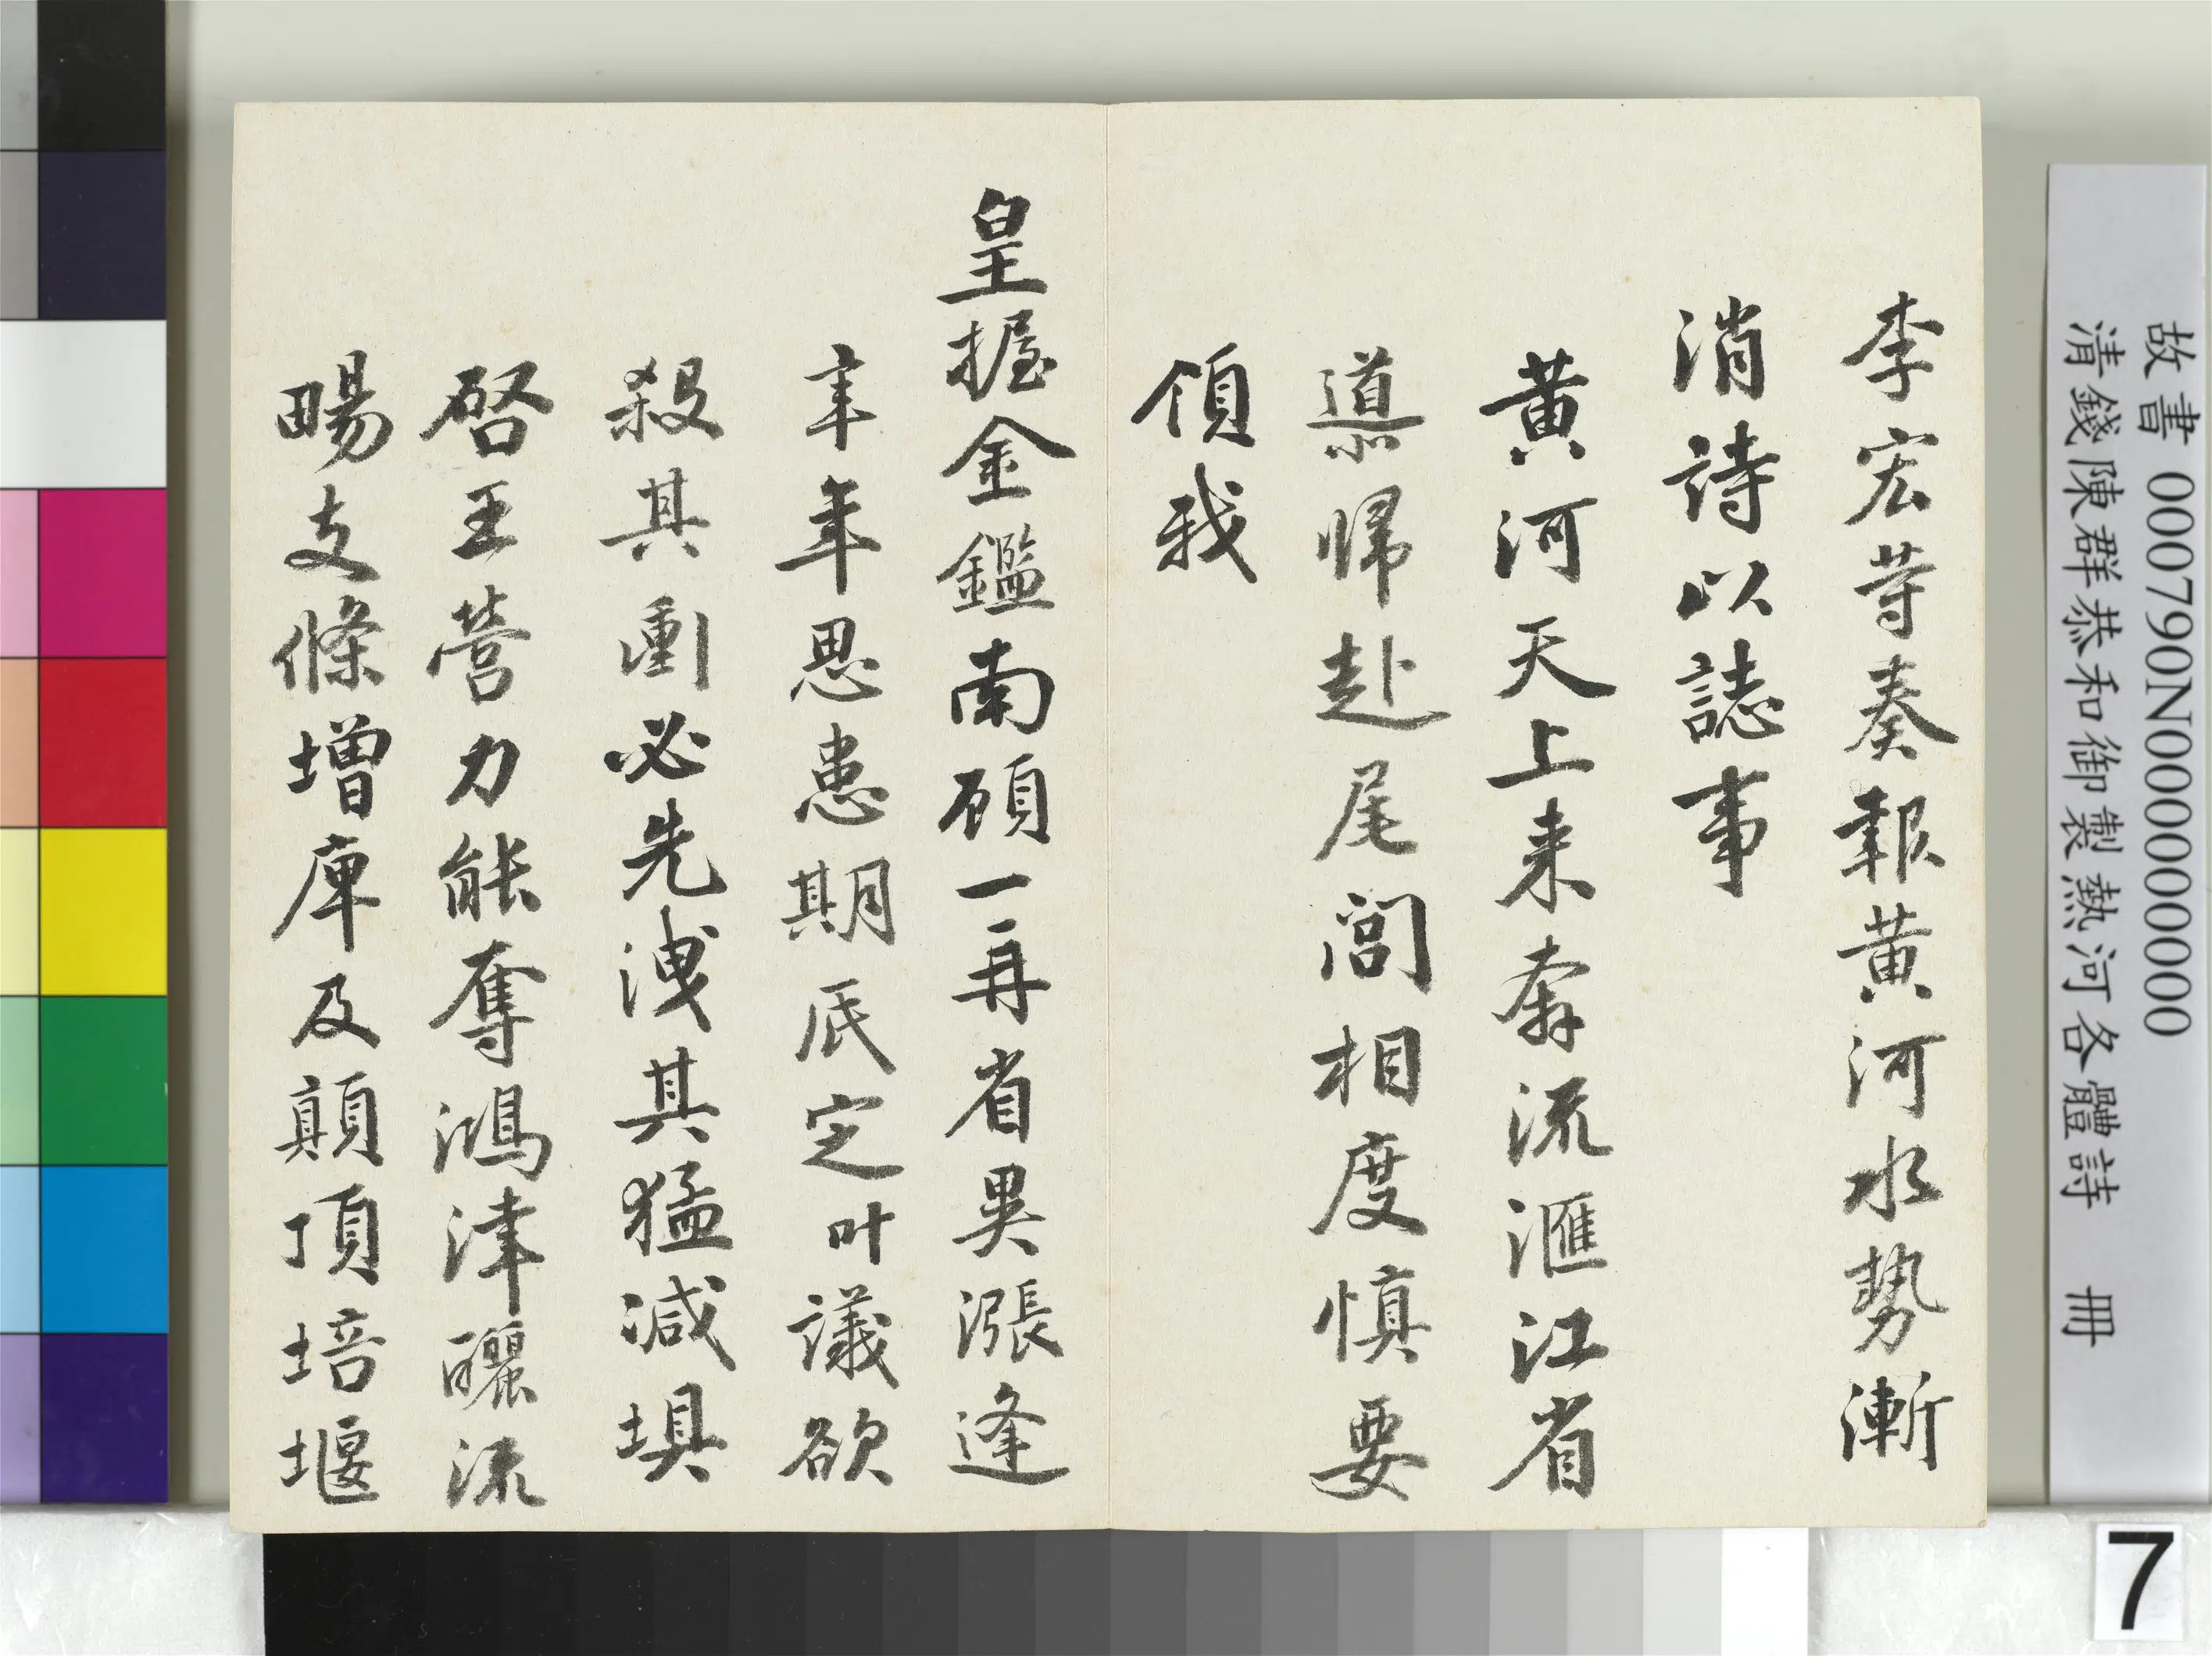 李宏等奏報黃河水勢漸
消詩以誌事
黃河天上来奔流滙江省
導歸赴尾閭相度慎要
領我
皇握金鑑南顧一再省異漲逢
年年思患期底定叶議欲
殺其衝必先洩其猛減埧
啓王營力能奪鴻津釃流
暢支條增庳及顛頂培堰
故書 000790N000000000
清錢陳群恭和御製熱河各體詩 冊
7